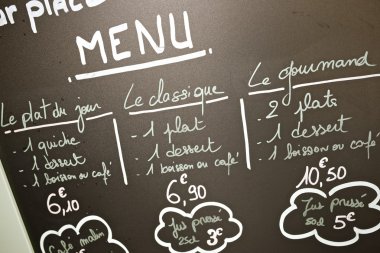 sur place
MENU
Le plat du jour
- 1 quiche
- 1 dessert
- 1 boisson ou café
6,10 €
Le classique
- 1 plat
- 1 dessert
- 1 boisson ou café
6,90 €
Le gourmand
- 2 plats
- 1 dessert
- 1 boisson ou café
10,50 €
Café malin
Jus pressé
25cl 3€
Jus pressé
50cl 5€